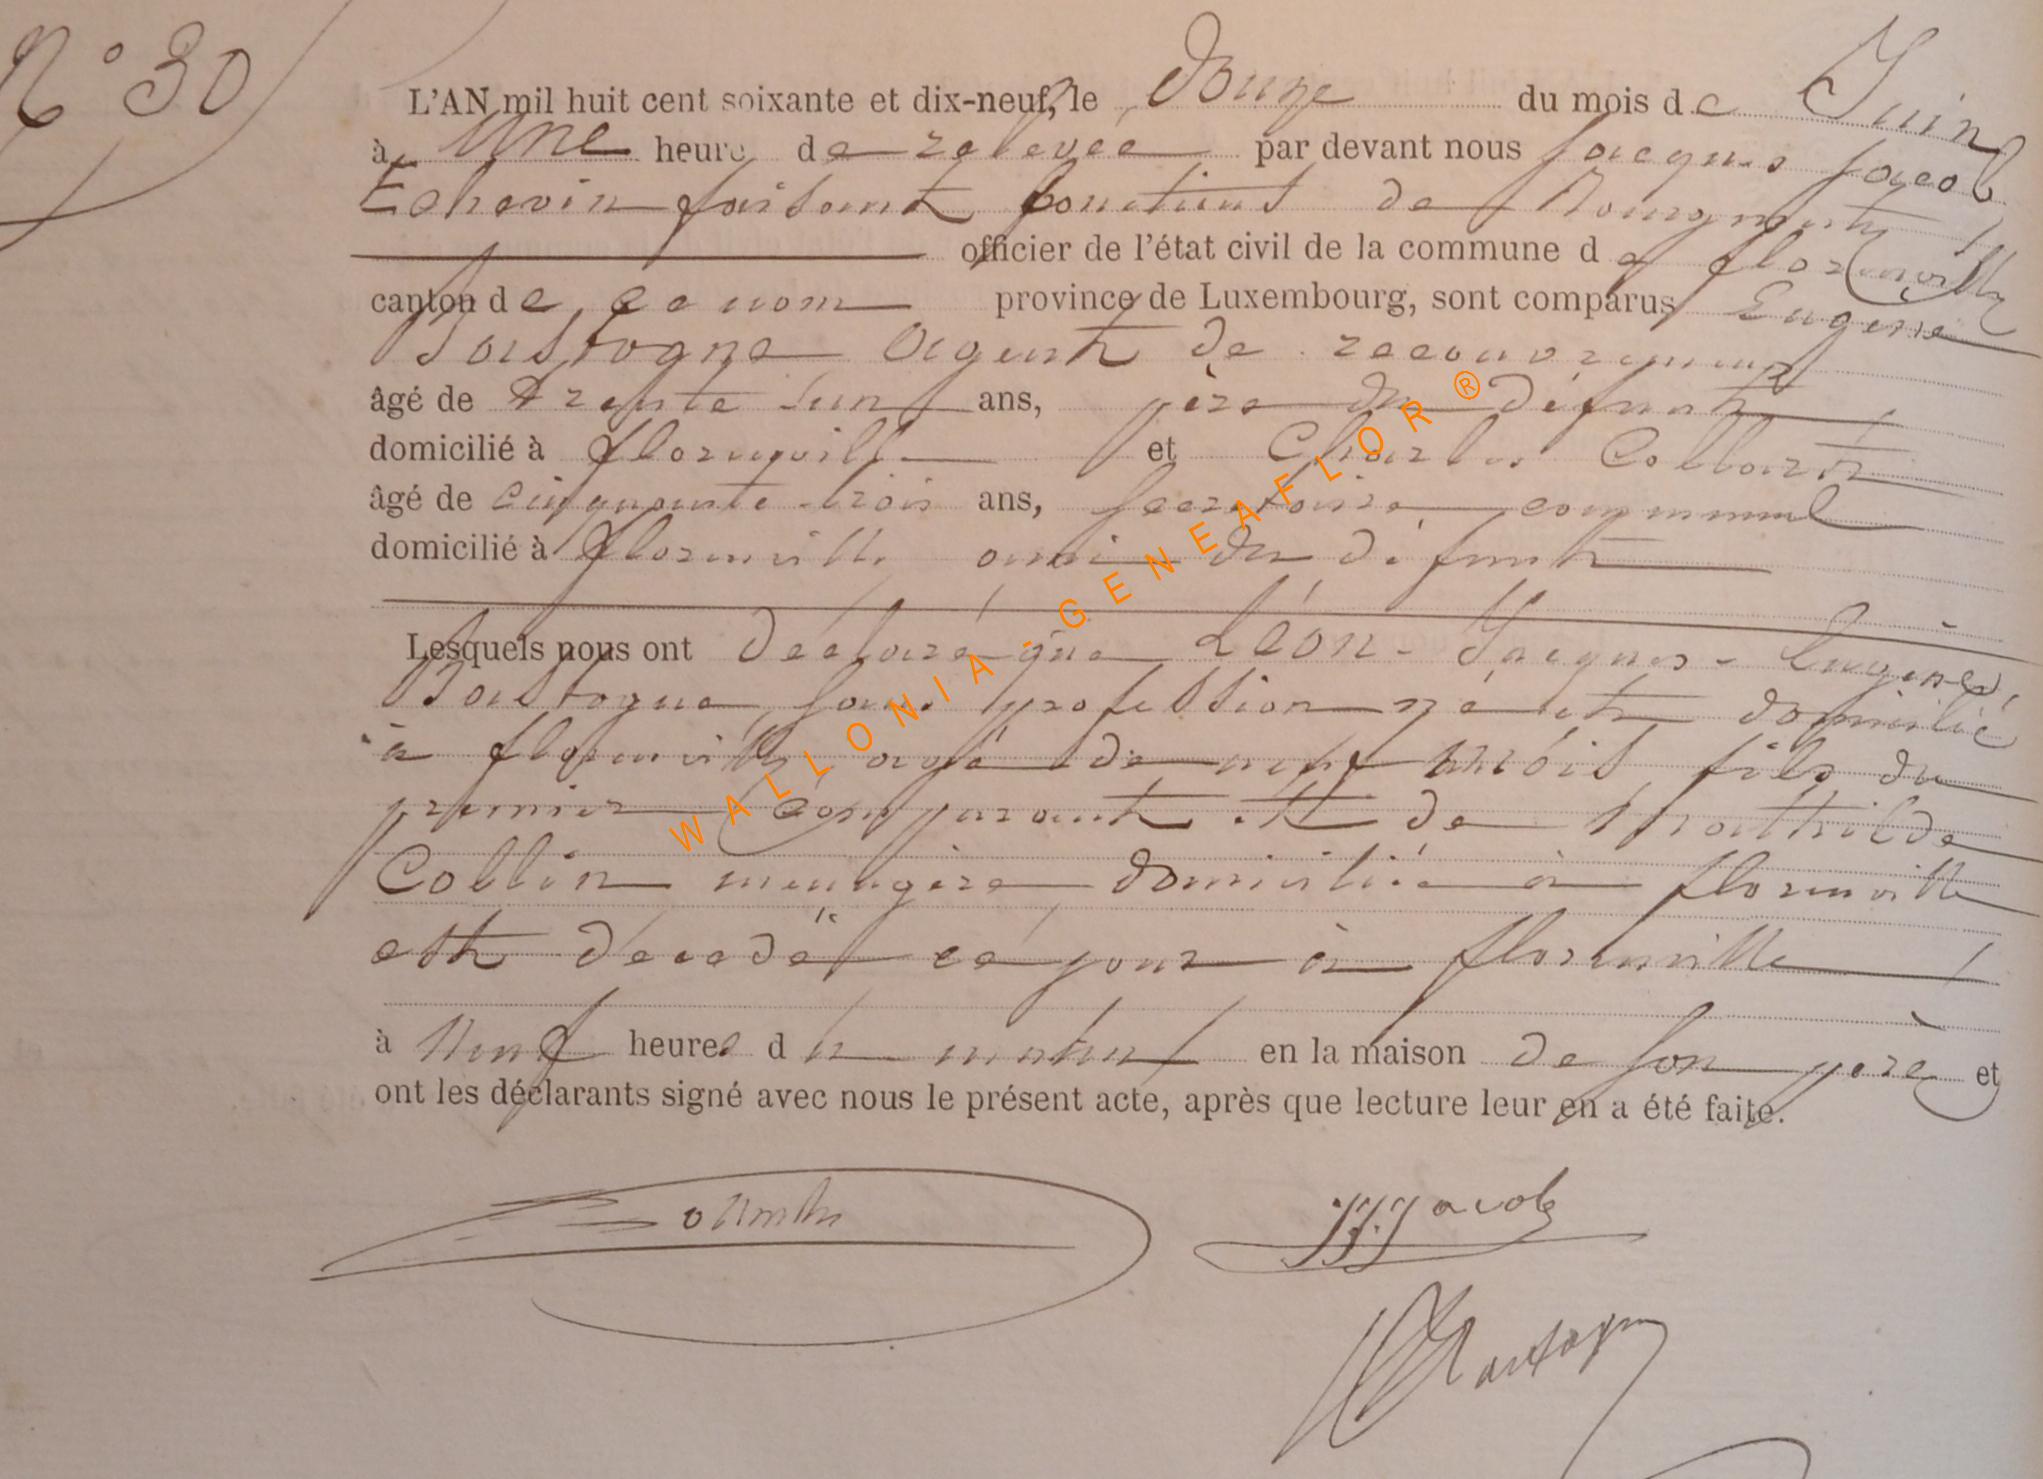 N° 30
L'AN mil huit cent soixante et dix-neuf, le Douze du mois de Juin
à Une heure de relevée par devant nous Jacques Jacob
Echevin faisant fonctions de Bourgmestre
officier de l'état civil de la commune de florenville
canton de ce nom province de Luxembourg, sont comparus Eugène
Bastogne Agent de recouvrement
âgé de trente un ans, père du défunt
domicilié à florenville et Charles Collart
âgé de cinquante-trois ans, secrétaire communal
domicilié à florenville ami du défunt
Lesquels nous ont déclaré que Léon-Jacques-Eugène
Bastogne, sans profession né et domicilié
à florenville, agé de neuf mois, fils du
premier Comparant et de Mathilde
Collin menagère domiciliée à florenville
est décedé ce jour à florenville
à Neuf heures du matin en la maison de son père et
ont les déclarants signé avec nous le présent acte, après que lecture leur en a été faite.
JJ. Jacob
Bastogne
WALLONIA-GENEAFLOR®